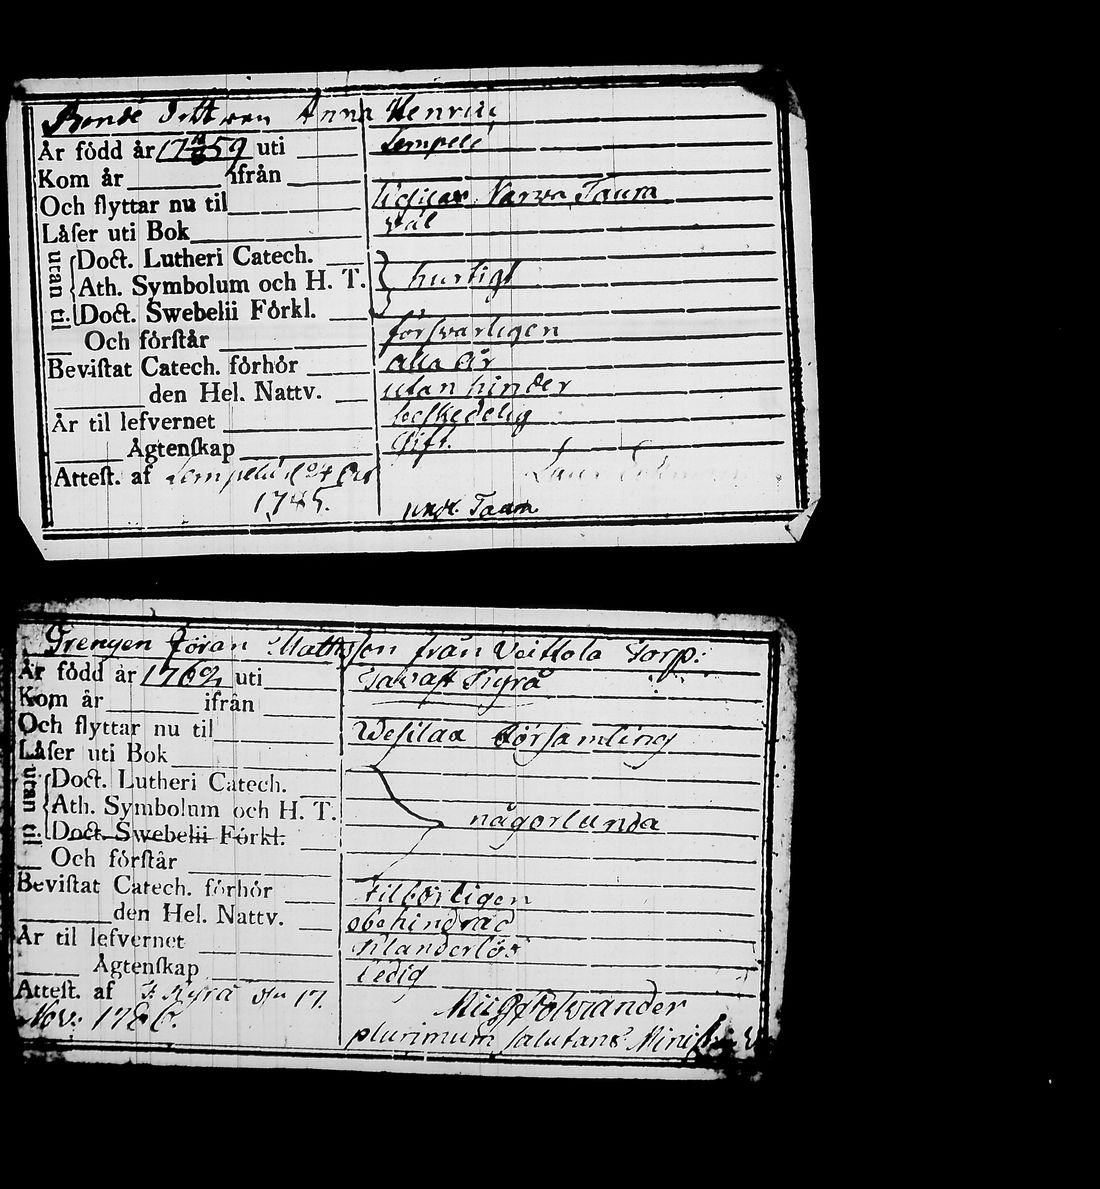 Bonde dottren Anna Henric
År född år 17 59 uti Lempele
Kom år ifrån
Och flyttar nu til Narva, Taura
Låser uti Bok väl
utan til { Doct. Lutheri Catech.
Ath. Symbolum och H. T. } hurtigt
Doct. Swebelii Förkl.
Och förstår försvarligen
Bevistat Catech. förhör alla år
den Hel. Nattv. utan hinder
År til lefvernet beskedelig
Ägtenskap Gift.
Attest. af Lempelä d. 24 Oct
1785.
Drengen Jöran Mattsson från Veittola Torp:
År född år 1760/2 uti Tavast Kyrå
Kom år ifrån
Och flyttar nu til Wesilax församling
Låser uti Bok
utan til { Doct. Lutheri Catech.
Ath. Symbolum och H. T. någorlunda
Doct. Swebelii Förkl.
Och förstår
Bevistat Catech. förhör tilbörligen
den Hel. Nattv. obehindrad
År til lefvernet klanderlös
Ägtenskap ledig
Attest. af T. Kyrå den 17.
Nov: 1786.
plurimum salutans